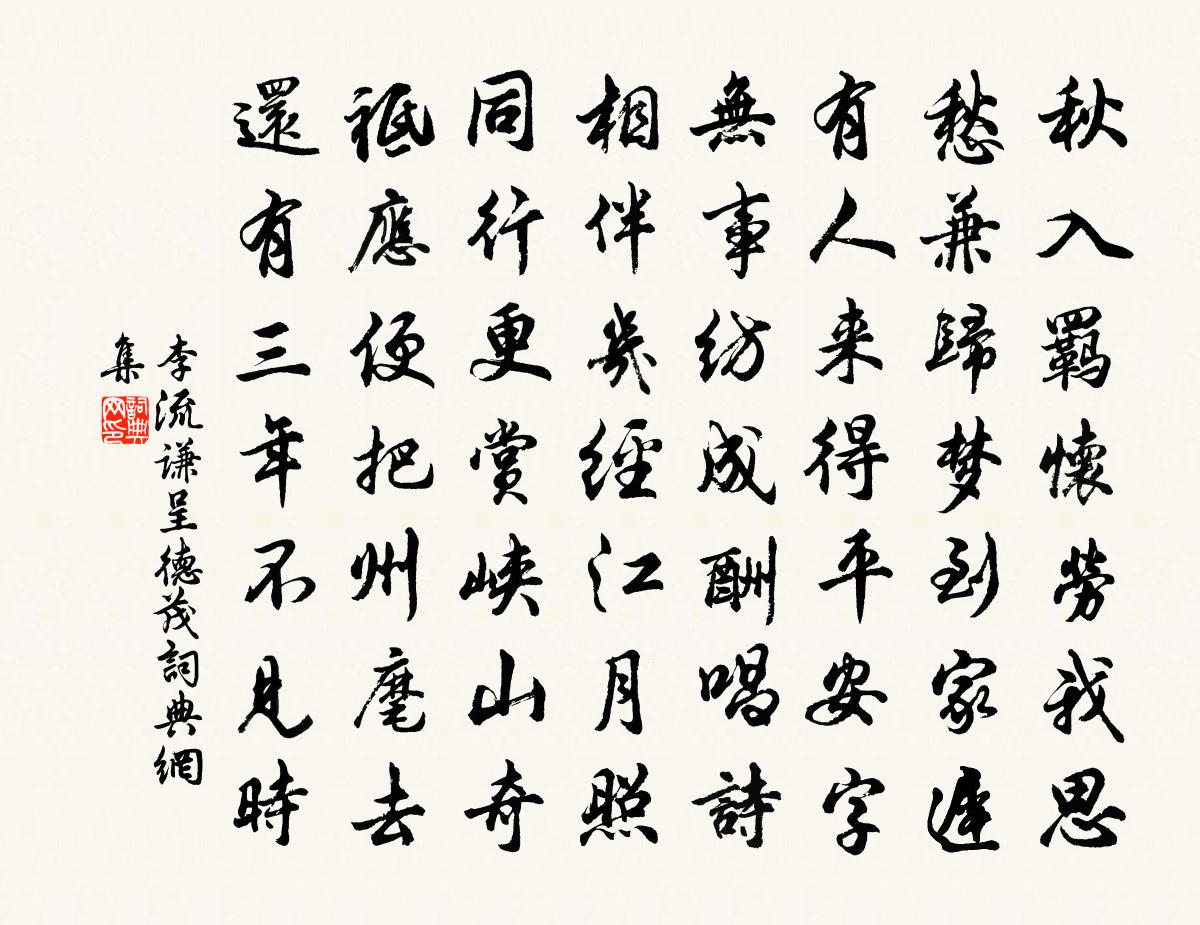 秋入羈懷勞我思
愁兼歸梦到家遲
有人来得平安字
無事紛成酬唱詩
相伴幾經江月照
同行更賞峽山奇
祗應便把州麾去
還有三年不見時
李流谦呈德茂詞典網
集
詞典网印